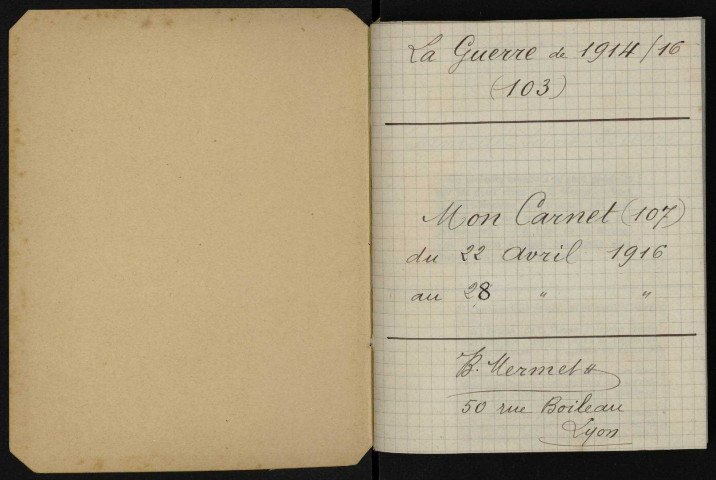 La Guerre de 1914/16
(103)
Mon Carnet (107)
du 22 avril 1916
au 28 " "
B. Mermet
50 rue Boileau
Lyon